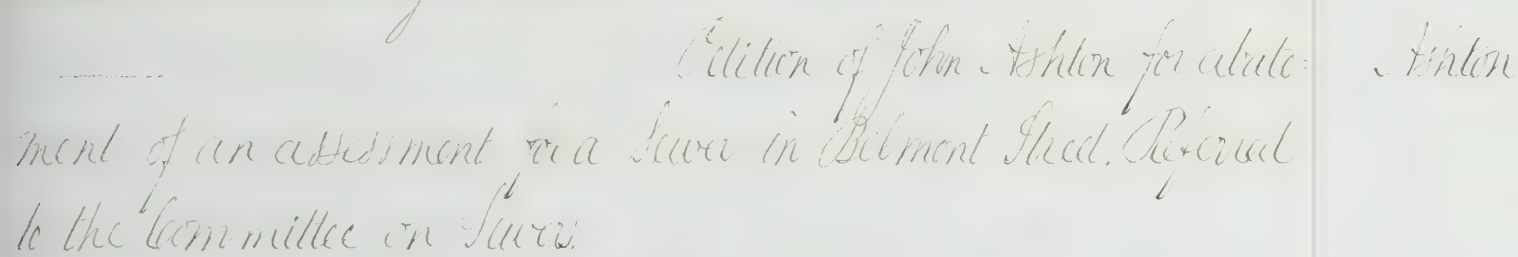 Petition of John Ashton for abate= Ashton
ment of an assessment for a Sewer in Belmont Street. Referred
to the Committee on Sewers.